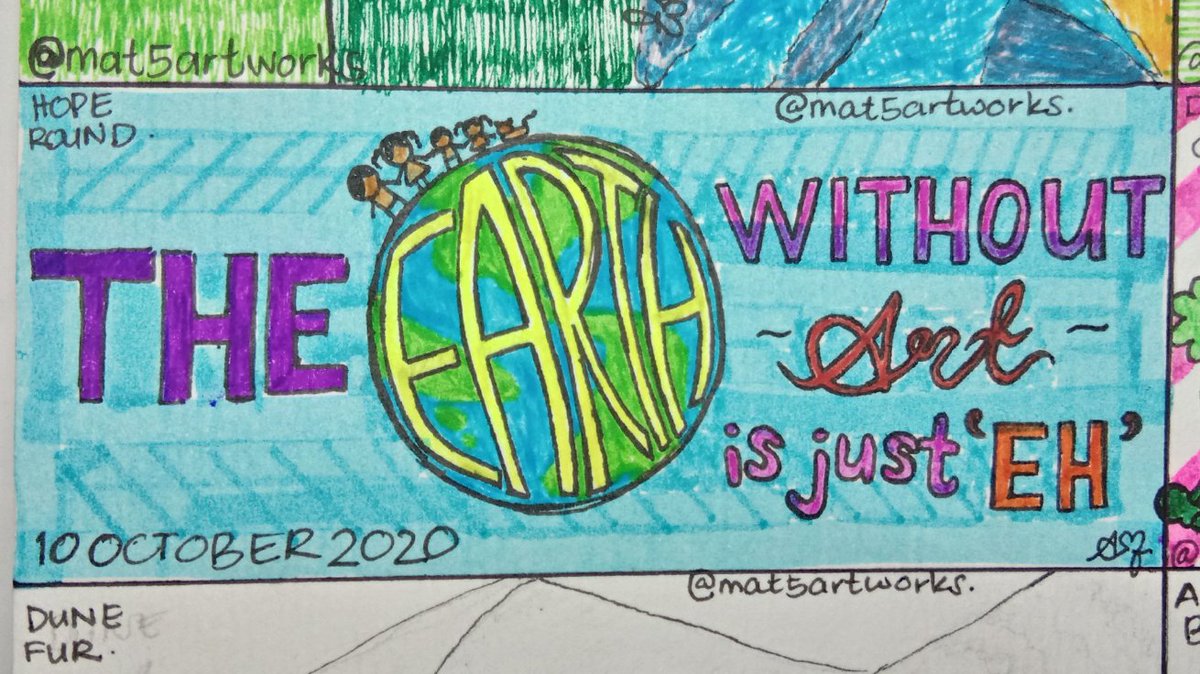 @mat5artworks
HOPE
ROUND.
@mat5artworks.
THE EARTH WITHOUT
~ Art ~
is just 'EH'
10 OCTOBER 2020
@mat5artworks.
DUNE
FUR.